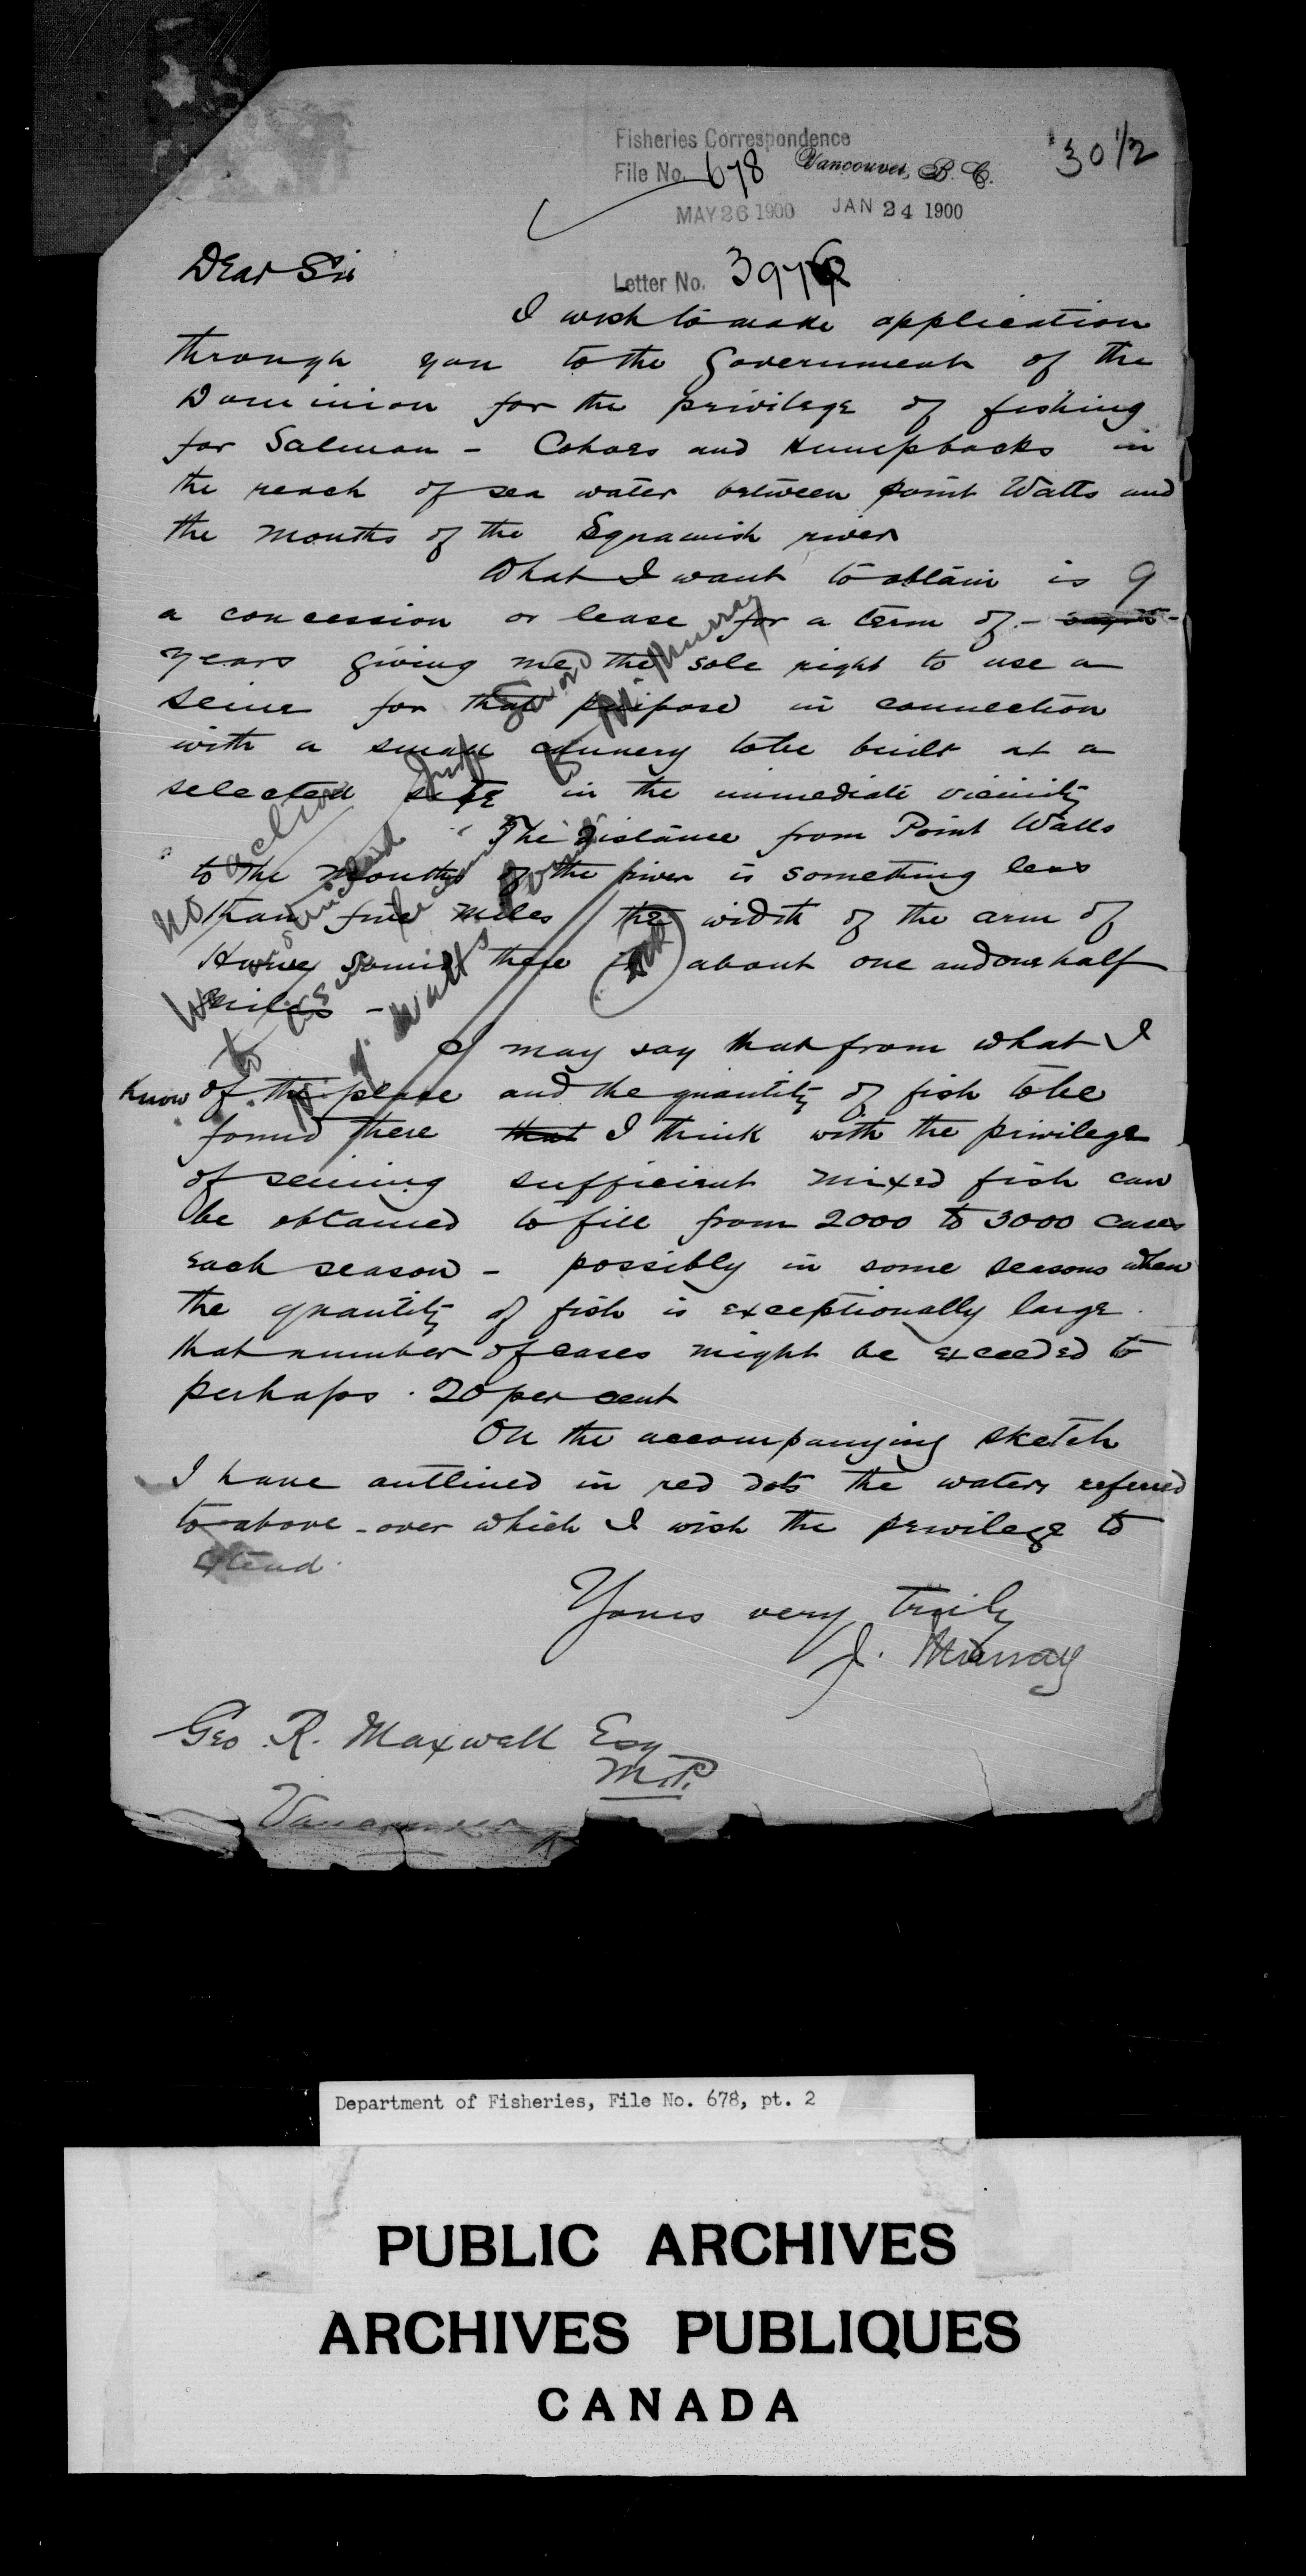 Fisheries Correspondence
File No. 678
Vancouver, B. C.
30 1/2
MAY 26 1900
JAN 24 1900
Dear Sir
Letter No.
I wish to make application
through you to the Government of the
Dominion for the privilege of fishing
for Salmon - Cohoes and Humpbacks in
the reach of sea water between point Watts and
the mouths of the Squamish river
What I want to obtain is 9
a concession or lease for a term of -
years giving me the sole right to use a
seine for that purpose in connection
with a small cannery to be built at a
selected site in the immediate vicinity
The distance from Point Watts
to the mouths of the river is something less
than five miles the width of the arm of
Howe Sound there is about one and one half
miles -
I may say that from what I
know of the place and the quantity of fish to be
found there that I think with the privilege
of seining sufficient mixed fish can
be obtained to fill from 2000 to 3000 cases
each season - possibly in some seasons when
the quantity of fish is exceptionally large
that number of cases might be exceeded to
perhaps 20 per cent
On the accompanying sketch
I have outlined in red dots the waters referred
to above - over which I wish the privilege to
extend.
Yours very truly
J. Murray
Geo. R. Maxwell Esq
M.P.
Vancouver
no action
Department of Fisheries, File No. 678, pt. 2
PUBLIC ARCHIVES
ARCHIVES PUBLIQUES
CANADA